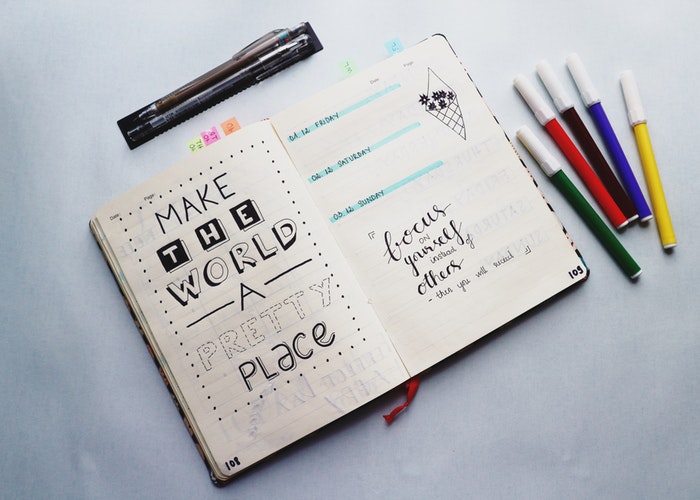 Date: Page:
MAKE
THE
WORLD
A
PRETTY
PLACE
108
Date: Page:
01 12 FRIDAY
02 12 SATURDAY
03 12 SUNDAY
focus
on
yourself
instead of
others
- then you will succeed